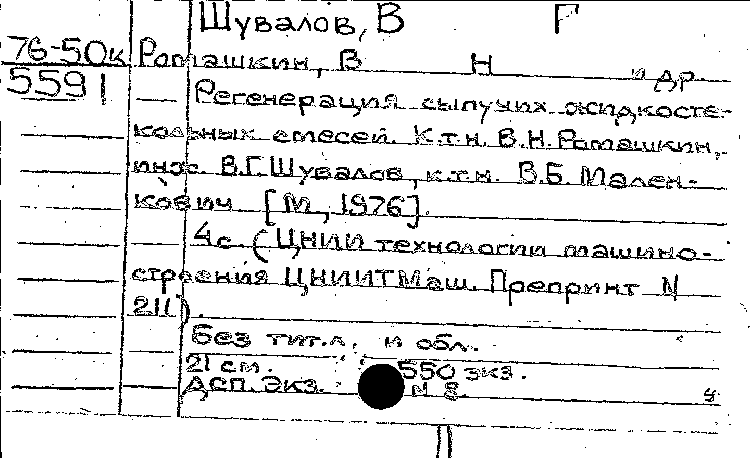 Шувалов, В Г
76-50к Ромашкин, В Н и др.
5591
Регенерация сыпучих жидкосте-
кольных смесей. К.т.н. В.Н. Ромашкин,
инж. В.Г. Шувалов, к.т.н. В.Б. Мален-
кович [М., 1976].
4с. (ЦНИИ технологии машино-
строения ЦНИИТМаш. Препринт N
211).
Без тит.л. и обл.
21 см. 550 экз.
ДСП. Экз. N 8.